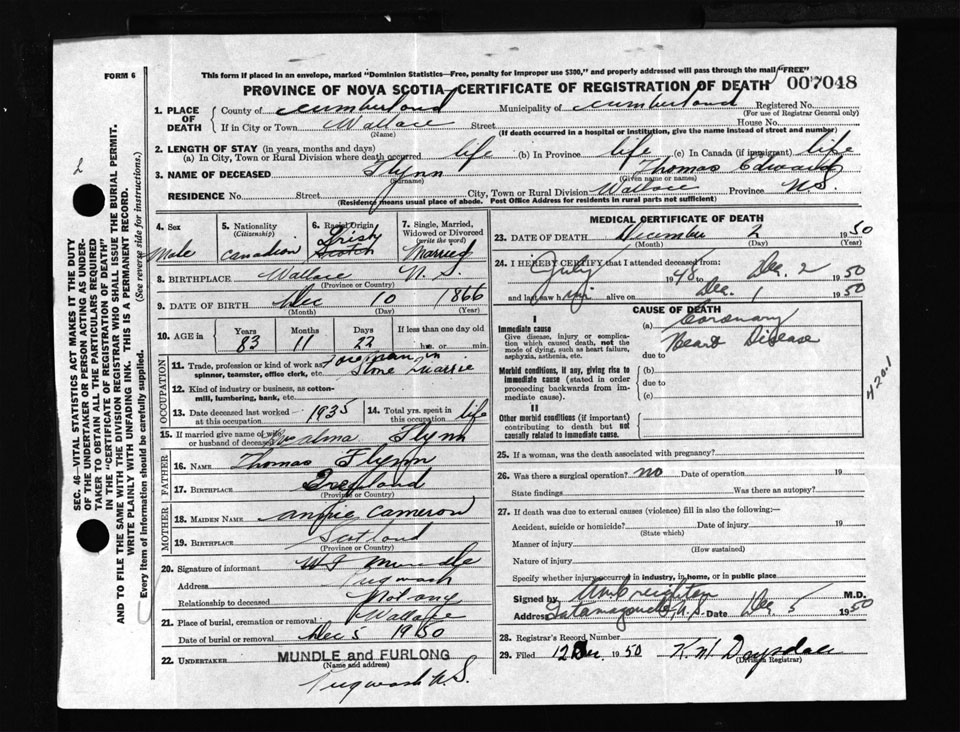 This form if placed in an envelope, marked "Dominion Statistics—Free, penalty for improper use $300," and properly addressed will pass through the mail "FREE"
FORM 6
PROVINCE OF NOVA SCOTIA—CERTIFICATE OF REGISTRATION OF DEATH 007048
1. PLACE OF DEATH
County of Cumberland Municipality of Cumberland Registered No.
(For use of Registrar General only)
If in City or Town Wallace Street House No.
(Name) (If death occurred in a hospital or institution, give the name instead of street and number)
2. LENGTH OF STAY (in years, months and days)
(a) In City, Town or Rural Division where death occurred life (b) In Province life (c) In Canada (if immigrant) life
3. NAME OF DECEASED Flynn Thomas Edward
(Surname) (Given name or names)
RESIDENCE No. Street City, Town or Rural Division Wallace Province N.S.
(Residence means usual place of abode. Post Office Address for residents in rural parts not sufficient)
4. Sex Male
5. Nationality (Citizenship) Canadian
6. Racial Origin Irish Scotch
7. Single, Married, Widowed or Divorced (write the word) Married
8. BIRTHPLACE Wallace N. S.
(Province or Country)
9. DATE OF BIRTH Dec 10 1866
(Month) (Day) (Year)
10. AGE in Years Months Days If less than one day old
83 11 22 hrs. or min.
OCCUPATION
11. Trade, profession or kind of work as spinner, teamster, office clerk, etc. Foreman in Stone Quarrie
12. Kind of industry or business, as cotton-mill, lumbering, bank, etc.
13. Date deceased last worked at this occupation 1935
14. Total yrs. spent in this occupation life
15. If married give name of wife or husband of deceased Flynn
FATHER
16. NAME Thomas Flynn
17. BIRTHPLACE Ireland
(Province or Country)
MOTHER
18. MAIDEN NAME Annie Cameron
19. BIRTHPLACE Scotland
(Province or Country)
20. Signature of informant Mundle
Address Pugwash
Relationship to deceased Not any
21. Place of burial, cremation or removal Wallace
Date of burial or removal Dec 5 1950
22. UNDERTAKER MUNDLE and FURLONG
(Name and address)
Pugwash N.S.
MEDICAL CERTIFICATE OF DEATH
23. DATE OF DEATH December 2 1950
(Month) (Day) (Year)
24. I HEREBY CERTIFY that I attended deceased from:
July 1948 to Dec. 2 1950
and last saw him alive on Dec. 1 1950
CAUSE OF DEATH
I
Immediate cause
Give disease, injury or complication which caused death, not the mode of dying, such as heart failure, asphyxia, asthenia, etc.
(a) Coronary
Heart Disease
due to
Morbid conditions, if any, giving rise to immediate cause (stated in order proceeding backwards from immediate cause).
(b)
due to
(c)
II
Other morbid conditions (if important) contributing to death but not causally related to immediate cause.
420.1
25. If a woman, was the death associated with pregnancy?
26. Was there a surgical operation? no Date of operation 19
State findings Was there an autopsy?
27. If death was due to external causes (violence) fill in also the following:—
Accident, suicide or homicide? Date of injury 19
(State which)
Manner of injury
(How sustained)
Nature of injury
Specify whether injury occurred in industry, in home, or in public place
Signed by M.D.
Address Tatamagouche, N.S. Date Dec 5 1950
28. Registrar's Record Number
29. Filed 12 Dec. 1950 K. W. Drysdale
(Division Registrar)
SEC. 46—VITAL STATISTICS ACT MAKES IT THE DUTY
OF THE UNDERTAKER OR PERSON ACTING AS UNDER-
TAKER TO OBTAIN ALL THE PARTICULARS REQUIRED
IN THE "CERTIFICATE OF REGISTRATION OF DEATH"
AND TO FILE THE SAME WITH THE DIVISION REGISTRAR WHO SHALL ISSUE THE BURIAL PERMIT.
WRITE PLAINLY WITH UNFADING INK. THIS IS A PERMANENT RECORD.
Every item of information should be carefully supplied. (See reverse side for instructions.)